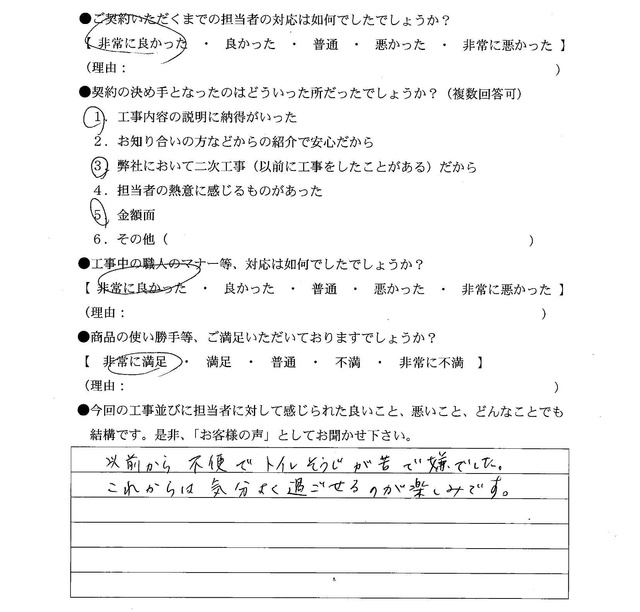 ●ご契約いただくまでの担当者の対応は如何でしたでしょうか？
【 非常に良かった ・ 良かった ・ 普通 ・ 悪かった ・ 非常に悪かった 】
（理由： ）
●契約の決め手となったのはどういった所だったでしょうか？（複数回答可）
１．工事内容の説明に納得がいった
２．お知り合いの方などからの紹介で安心だから
３．弊社において二次工事（以前に工事をしたことがある）だから
４．担当者の熱意に感じるものがあった
５．金額面
６．その他（ ）
●工事中の職人のマナー等、対応は如何でしたでしょうか？
【 非常に良かった ・ 良かった ・ 普通 ・ 悪かった ・ 非常に悪かった 】
（理由： ）
●商品の使い勝手等、ご満足いただいておりますでしょうか？
【 非常に満足 ・ 満足 ・ 普通 ・ 不満 ・ 非常に不満 】
（理由： ）
●今回の工事並びに担当者に対して感じられた良いこと、悪いこと、どんなことでも
結構です。是非、「お客様の声」としてお聞かせ下さい。
以前から 不便で トイレそうじが苦で嫌でした。
これからは 気分よく過ごせるのが楽しみです。